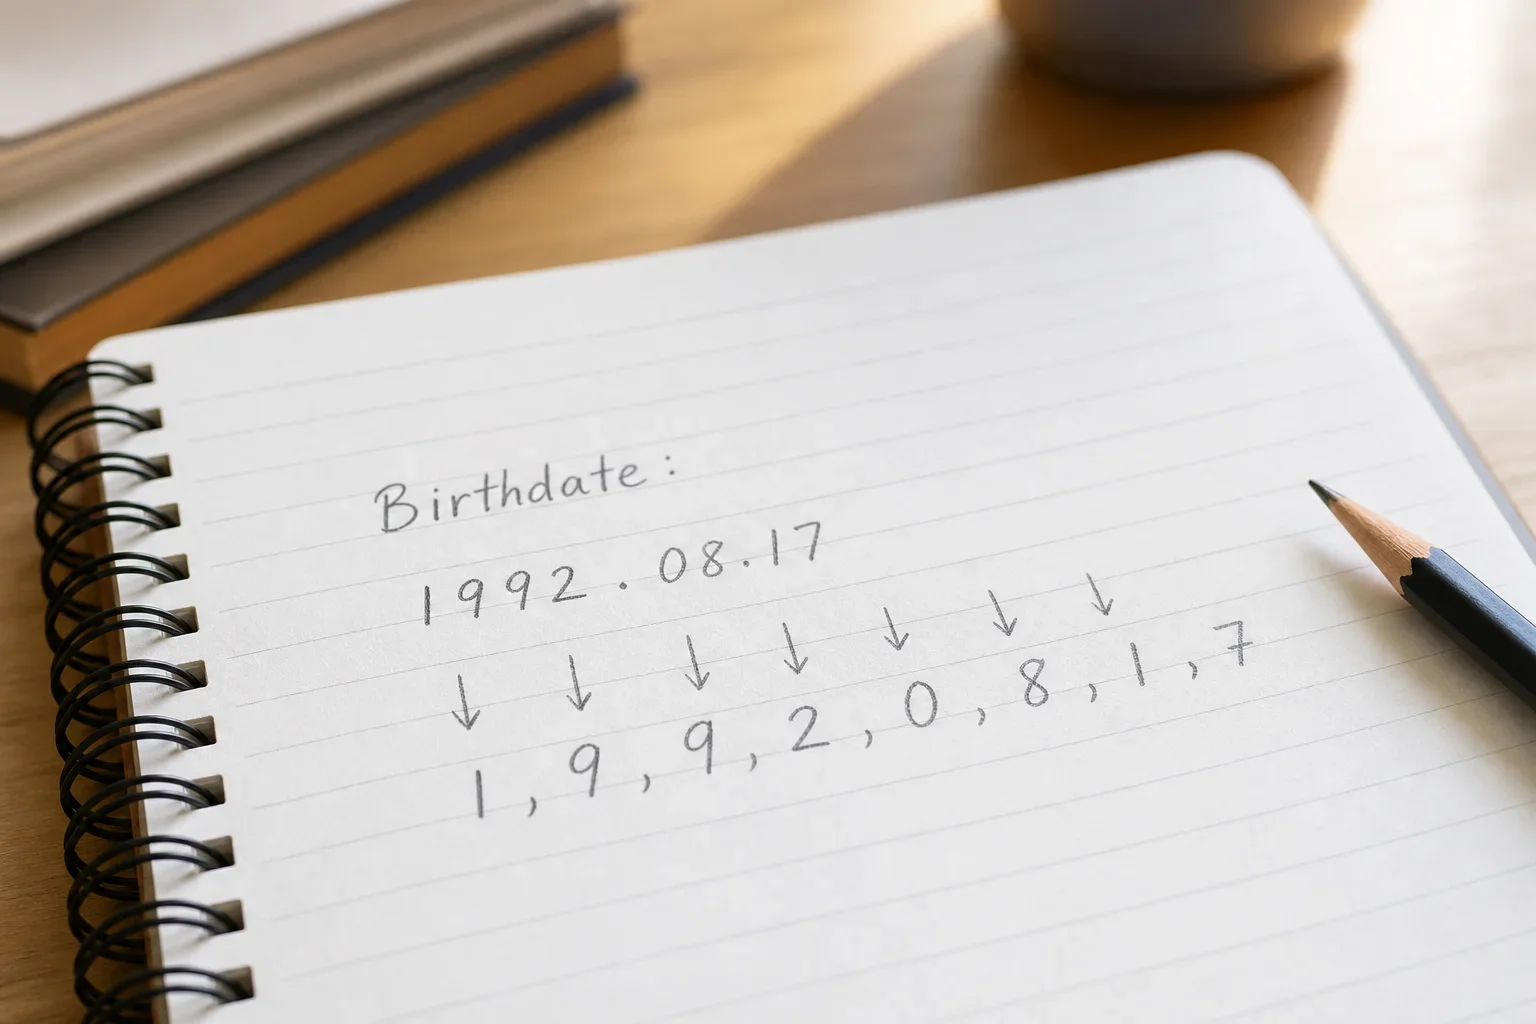 Birthdate:
1992.08.17
↓ ↓ ↓ ↓ ↓ ↓ ↓
1, 9, 9, 2, 0, 8, 1, 7